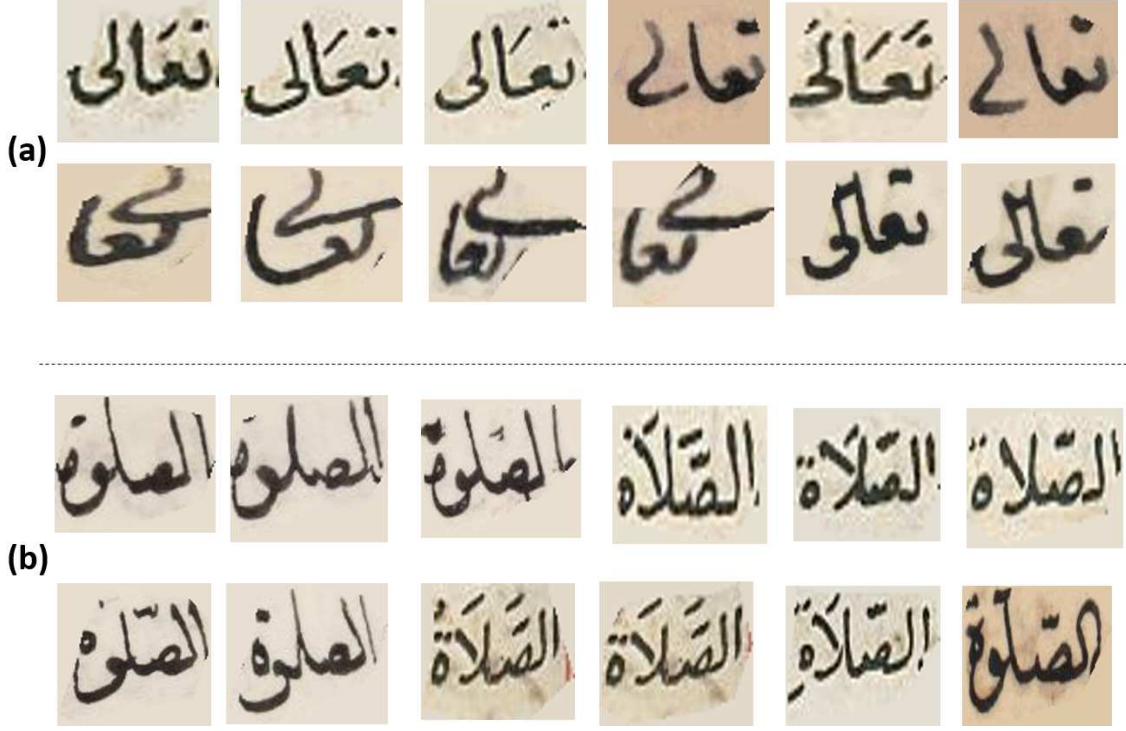 (a)
تعَالى تعَالى تعَالى تعالے تَعَالَى تعالے
تعالے تعالے تعالے تعالے تعالى تعالى
(b)
الصلوة الصلوة الصلوة الصَّلَاة الصَّلَاة الصَّلاة
الصّلوة الصلوة الصَلَاة الصَلَاة الصَّلَاة الصّلوة